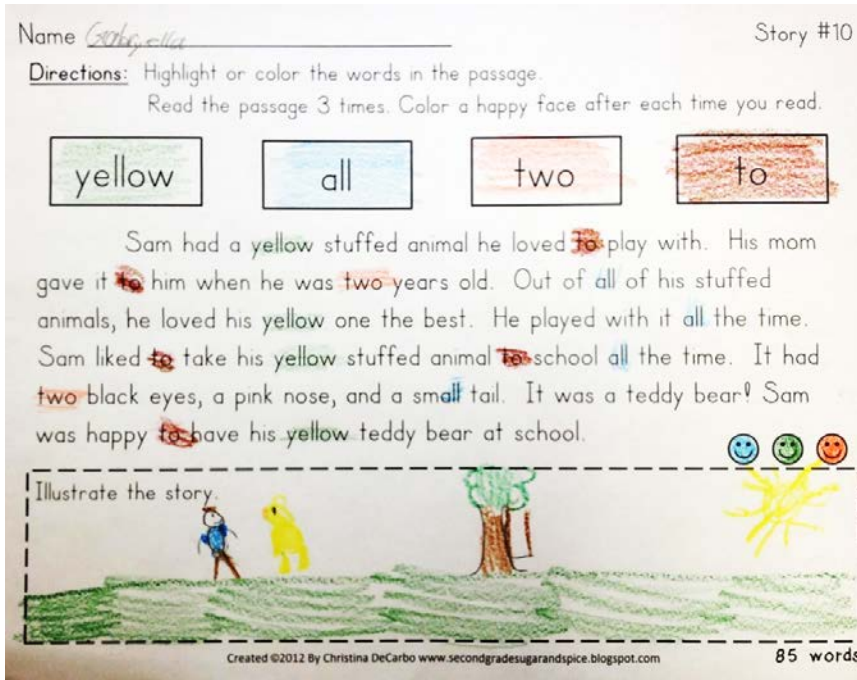 Name Gabriella Story #10
Directions: Highlight or color the words in the passage.
Read the passage 3 times. Color a happy face after each time you read.
yellow all two to
Sam had a yellow stuffed animal he loved to play with. His mom
gave it to him when he was two years old. Out of all of his stuffed
animals, he loved his yellow one the best. He played with it all the time.
Sam liked to take his yellow stuffed animal to school all the time. It had
two black eyes, a pink nose, and a small tail. It was a teddy bear! Sam
was happy to have his yellow teddy bear at school.
Illustrate the story.
Created ©2012 By Christina DeCarbo www.secondgradesugarandspice.blogspot.com 85 words